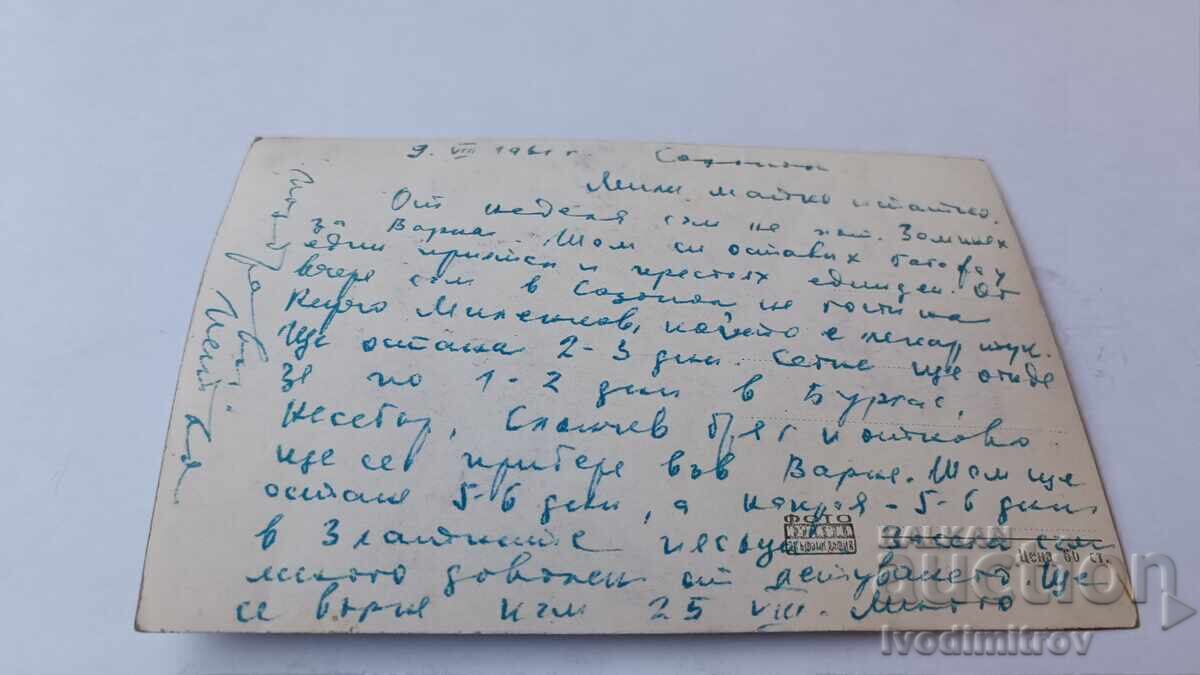 9. VIII 1961 г. Созопол
Мили майко и татко.
От неделя съм на път. Заминах
за Варна. Там си оставих багажа у
едни приятели и престоях един ден. От
вчера съм в Созопол на гости на
Миленков, който е лекар тук.
Ще остана 2-3 дни. Сетне ще отида
за по 1-2 дни в Бургас,
Несебър, Слънчев бряг и отново
ще се прибера във Варна. Там ще
остана 5-6 дни, а накрая - 5-6 дни
в Златните пясъци. Засега съм
много доволен от летуването. Ще
се върна към 25 VIII. Много
поздрави
ФОТО
Цена 60 ст.
BALKAN
auction
Ivodimitrov